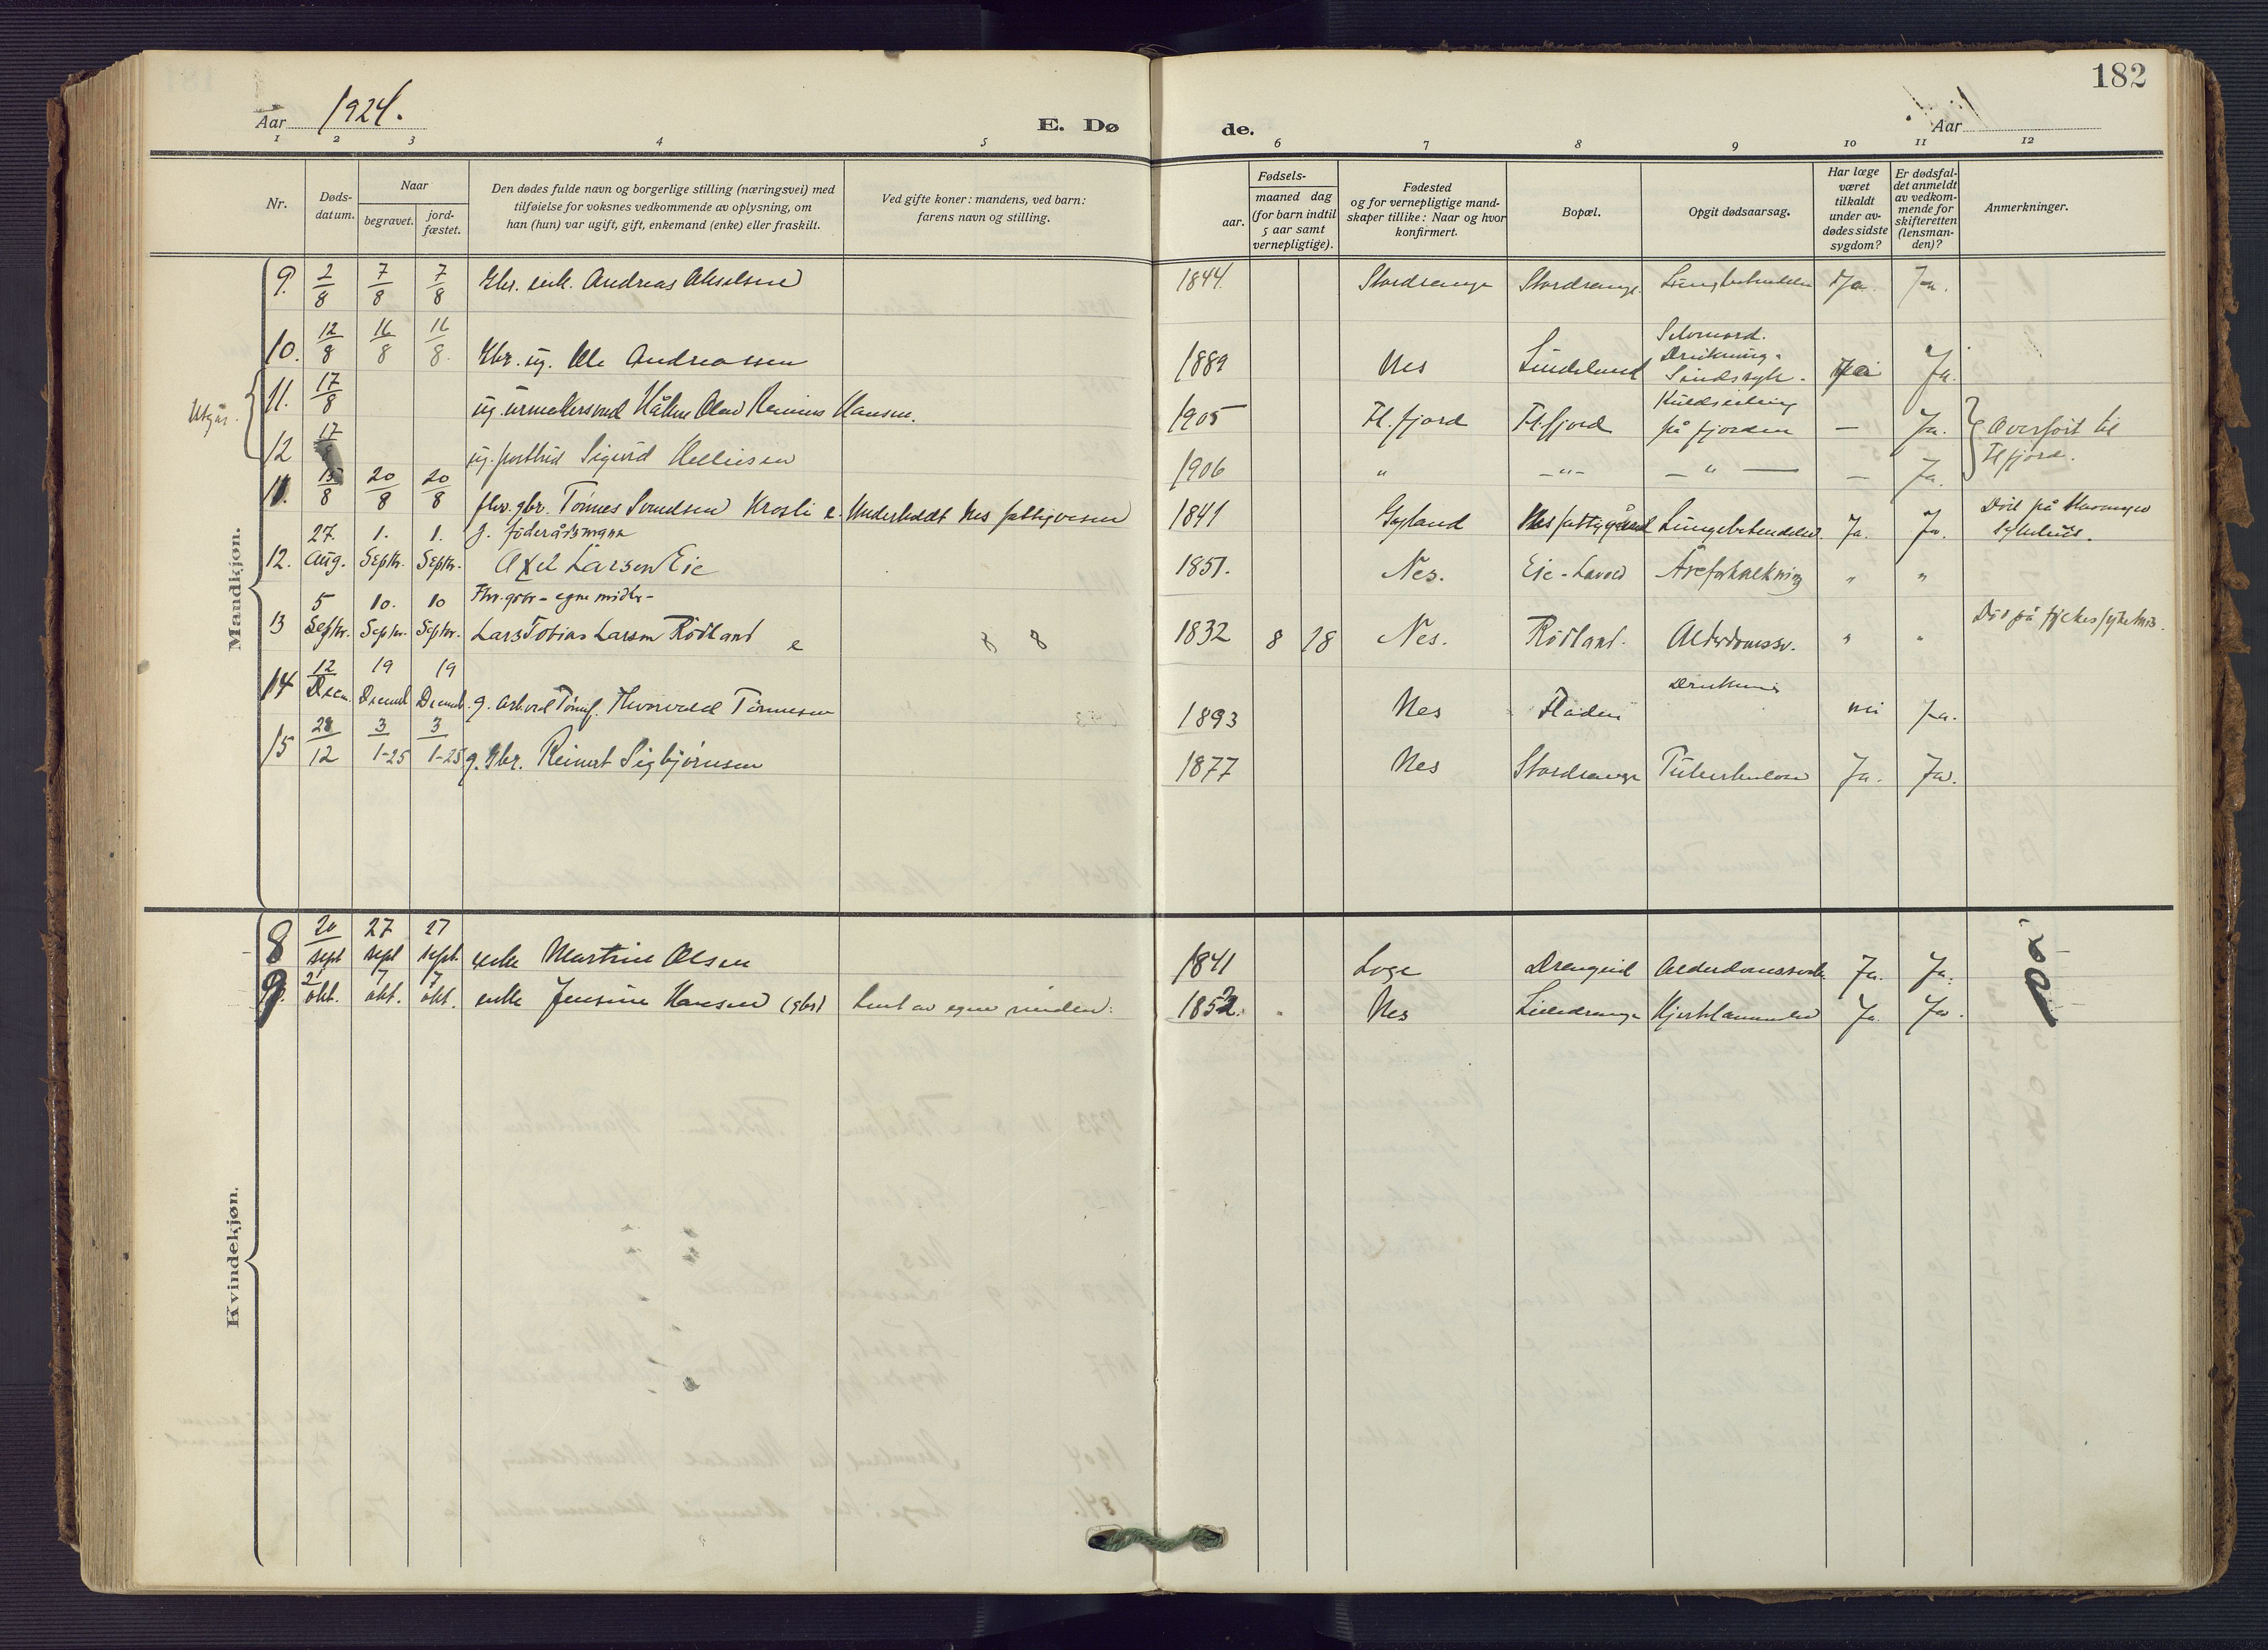 182
Aar 1924.
E. Dø
de.
Aar
1 2 3 4 5 6 7 8 9 10 11 12
Nr.
Døds-
datum.
Naar
begravet.
jord-
fæstet.
Den dødes fulde navn og borgerlige stilling (næringsvei) med
tilføielse for voksnes vedkommende av oplysning, om
han (hun) var ugift, gift, enkemand (enke) eller fraskilt.
Ved gifte koner: mandens, ved barn:
farens navn og stilling.
Fødsels-
aar.
maaned dag
(for barn indtil
5 aar samt
vernepligtige).
Fødested
og for vernepligtige mand-
skaper tillike: Naar og hvor
konfirmert.
Bopæl.
Opgit dødsaarsag.
Har læge
været
tilkaldt
under av-
dødes sidste
sygdom?
Er dødsfal-
det anmeldt
av vedkom-
mende for
skifteretten
(lensman-
den)?
Anmerkninger.
Mandkjøn.
9. 2/8 7/8 7/8 Gbr. enk. Andreas Akselsen 1844. Stordrange Stordrange Ja. Ja.
10. 12/8 16/8 16/8 Gbr. ug. Ole Andreassen 1889 Nes Lindeland Selvmord. Drukning. Sindssyk. Ja Ja.
Utgår.
11. 17/8 ug. Håkon Olav Hansen. 1905 Fl.fjord Fl.fjord Kuldseiling på fjorden — Ja. Overført til
12 17 ug. Sigurd 1906 " — " — — " — — Ja. Fl fjord.
11. 15/8 20/8 20/8 fhv. gbr. Tønnes Svendsen Krosli e. Underholdt Nes fattigvesen 1841 Gyland Nes fattiggård Lungebetendelse. Ja. Ja. Død på
12. 27. Aug. 1. Septbr. 1. Septbr. g. föderådsmann
Axel Larsen Eie 1851. Nes. Eie - Åreforkalkning " "
13 5 Septbr. 10. Septbr. 10 Septbr. Fhv. gbr - egne midler -
Lars Tobias Larsen Rödland e 8 8 1832 8 28 Nes. Rödland. Alderdomssv. " " Död på
14 12 Desem. 19 Desemb 19 Desemb. g. Thorvald Tönnesen 1893 Nes Fladen Drukning nei Ja.
15 28/12 3/1-25 3/1-25 g. Gbr. Reinert Sigbjörnsen 1877 Nes Stordrange Tuberkulose Ja. Ja.
Kvindekjøn.
8 20 sept 27 sept 27 sept. enke Martine Olsen 1841 Loge Drengeid Alderdomssvak. Ja. Ja.
9. 2 okt. 7 okt. 7 okt. enke Jensine Hansen (gbr) Levet av egne midler. 1852. Nes Lilledrange Ja. Ja.